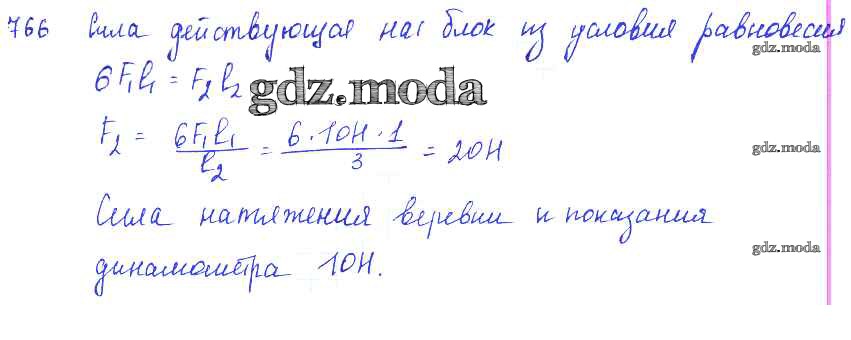 766 Сила действующая на блок из условия равновесия
gdz.moda
6F₁l₁ = F₂l₂
gdz.moda
F₂ = 6F₁l₁/l₂ = 6·10Н·1/3 = 20Н
gdz.moda
Сила натяжения веревки и показания
gdz.moda
динамометра 10Н.